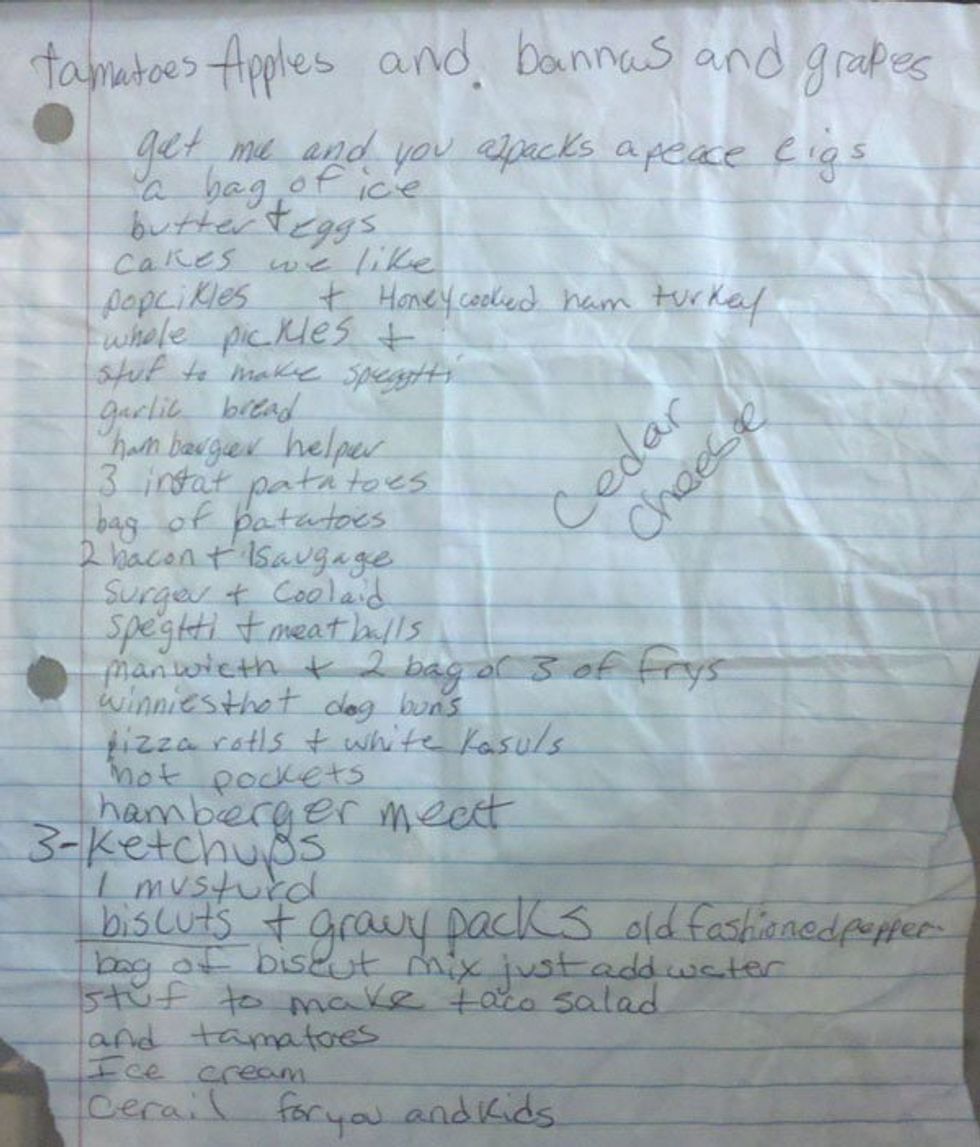 tamatoes Apples and bannas and grapes
get me and you a 2packs a peace Cigs
a bag of ice
butter + eggs
cakes we like
popcikles + Honey cooked ham turkey
whole pickles +
stuf to make spegtti
garlic bread
hamberger helper
3 instat patatoes
bag of patatoes
Cedar
Cheese
2 bacon + 1 Saugage
Surger + Coolaid
spegtti + meat balls
manwieth + 2 bag or 3 of frys
winnies + hot dog buns
pizza rolls + white Kasuls
hot pockets
hamberger meat
3-Ketchups
1 musturd
biscuts + gravy packs old fashioned pepper
bag of biscut mix just add water
stuf to make taco salad
and tamatoes
Ice cream
Cerail for you and kids